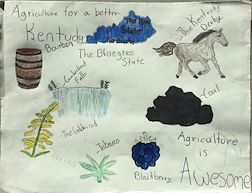 Agriculture for a better
Kentucky
Bourbon
The Bluegrass
State
The Kentucky
Derby
Cumberland
Falls
Coal
The Goldenrod
Tobacco
Blackberry
Agriculture
is
Awesome